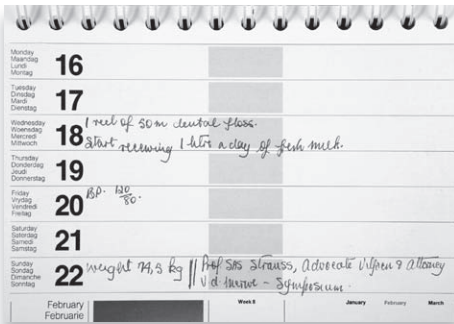 Monday
Maandag
Lundi
Montag
16
Tuesday
Dinsdag
Mardi
Dienstag
17
Wednesday
Woensdag
Mercredi
Mittwoch
18
1 reel of 50m dental floss.
Start receiving 1 litre a day of fresh milk.
Thursday
Donderdag
Jeudi
Donnerstag
19
Friday
Vrydag
Vendredi
Freitag
20
BP. 120/80.
Saturday
Saterdag
Samedi
Samstag
21
Sunday
Sondag
Dimanche
Sonntag
22
weight 74,5 kg || Prof SAS Strauss, Advocate & Attorney
- Symposium.
February
Februarie
Week 8
January February March